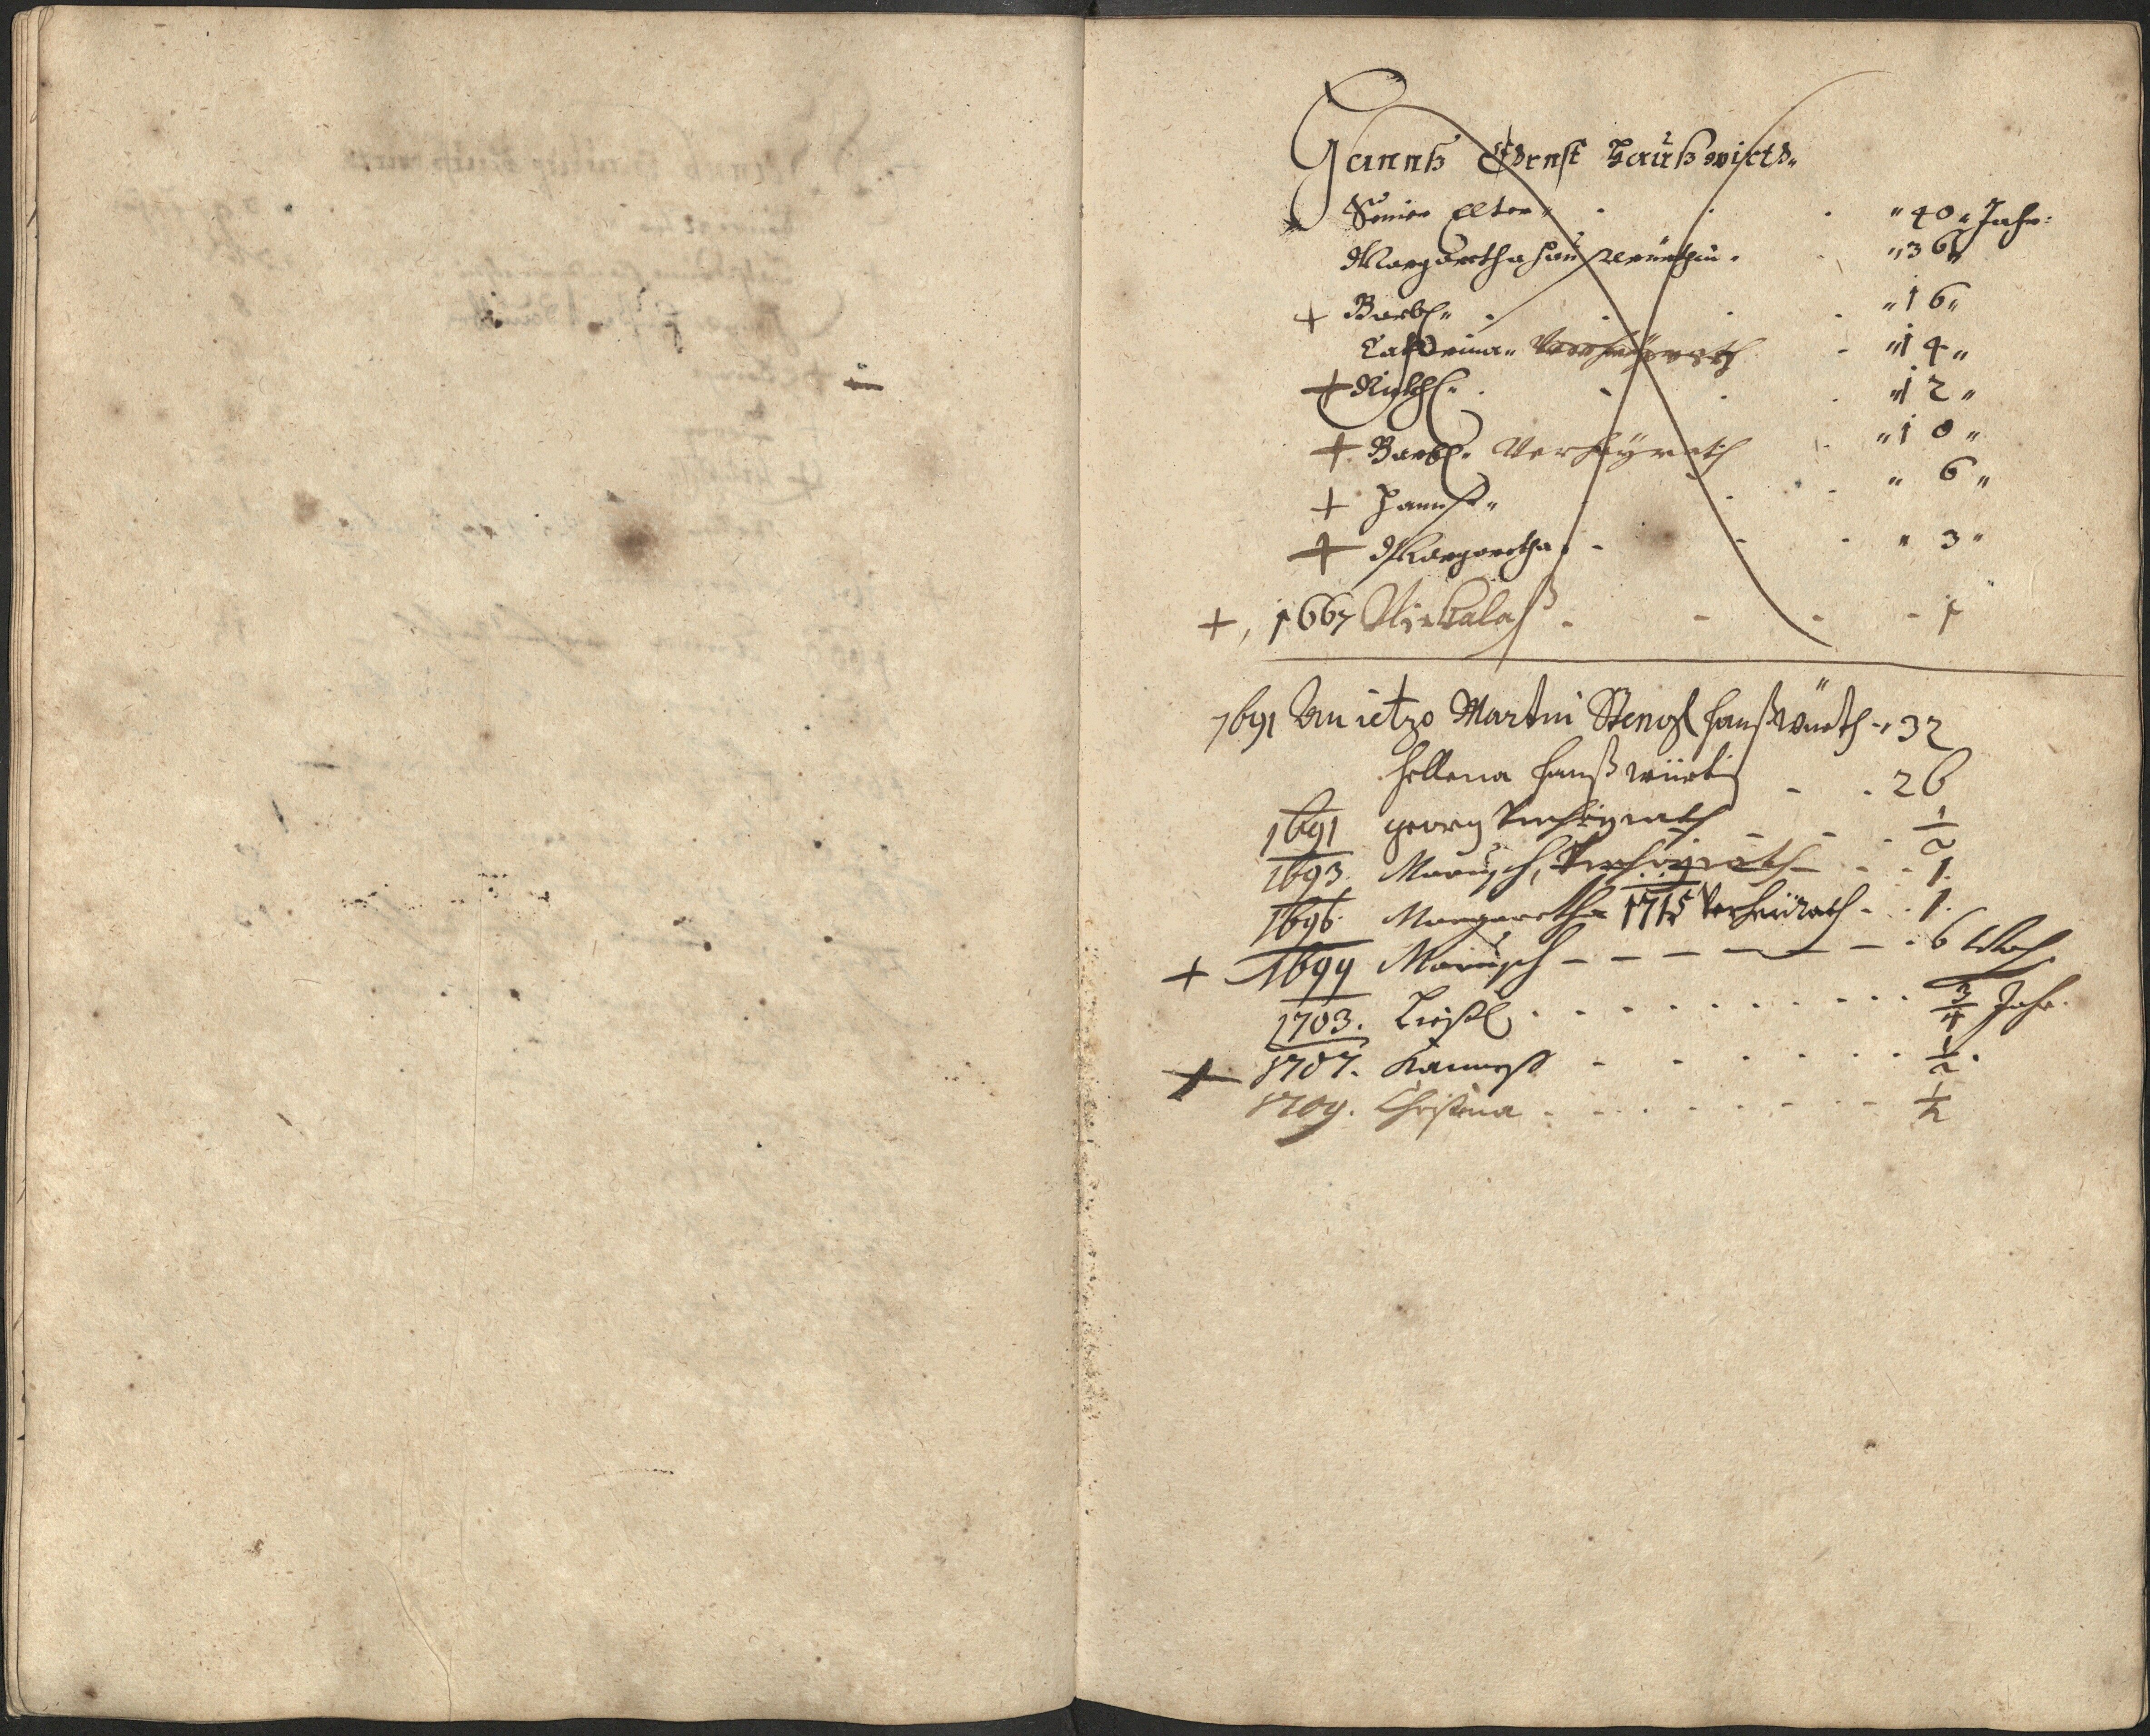 Hannß Ernst Haußwirth
Seines Alter " 40 " Jahr:
Margaretha haußwürthin " 36 "
+ Barbl " 16 "
Catherina Verheyrath " 14 "
+ " 12 "
+ Barbl Verheyrath " 10 "
+ Hannß " 6 "
+ Margaretha " 3 "
+, 1667 Nickalaß - 1
1691 An ietzo Martin Stengl haußwürth - 32
Hellena haußwürtin - 26
1691 georg Verheyrath 1/2
1693. Marusch, Verheyrath 1.
1696. Margaretha 1715 Verheürath - 1.
+ 1699 Marusch - 6 Woch
1703. Liesl 3/4 Jahr.
+ 1707. 1/2.
1709. Christina 1/2